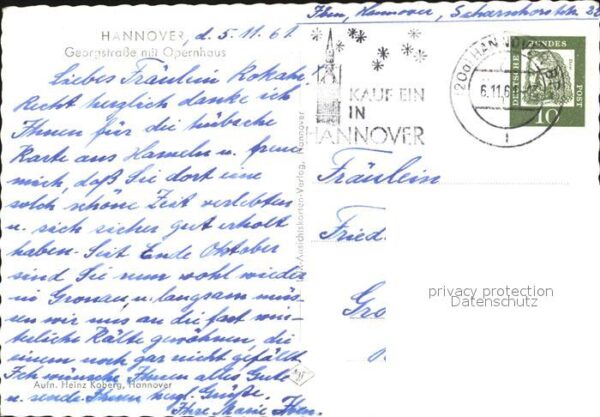 Iben, Hannover, Scharnhorststr. 22
HANNOVER, d. 5.11.61.
Georgstraße mit Opernhaus
Liebes Fräulein Kokahr,
Recht herzlich danke ich
Ihnen für die hübsche
Karte aus Hameln u. freue
mich, daß Sie dort eine
solch schöne Zeit verlebten
u. sich sicher gut erholt
haben. Seit Ende Oktober
sind Sie nun wohl wieder
in Gronau u. langsam müs-
sen wir uns an die fast win-
terliche Kälte gewöhnen, die
einem noch gar nicht gefällt.
Ich wünsche Ihnen alles Gute
u. sende Ihnen herzl. Grüße.
Ihre Marie Iben.
Aufn. Heinz Koberg, Hannover
Ansichtskarten-Verlag, Hannover
KAUF EIN
IN
HANNOVER
20a HANNOVER
6.11.61
DEUTSCHE BUNDES
POST
10
Fräulein
Fried
Gro
privacy protection
Datenschutz